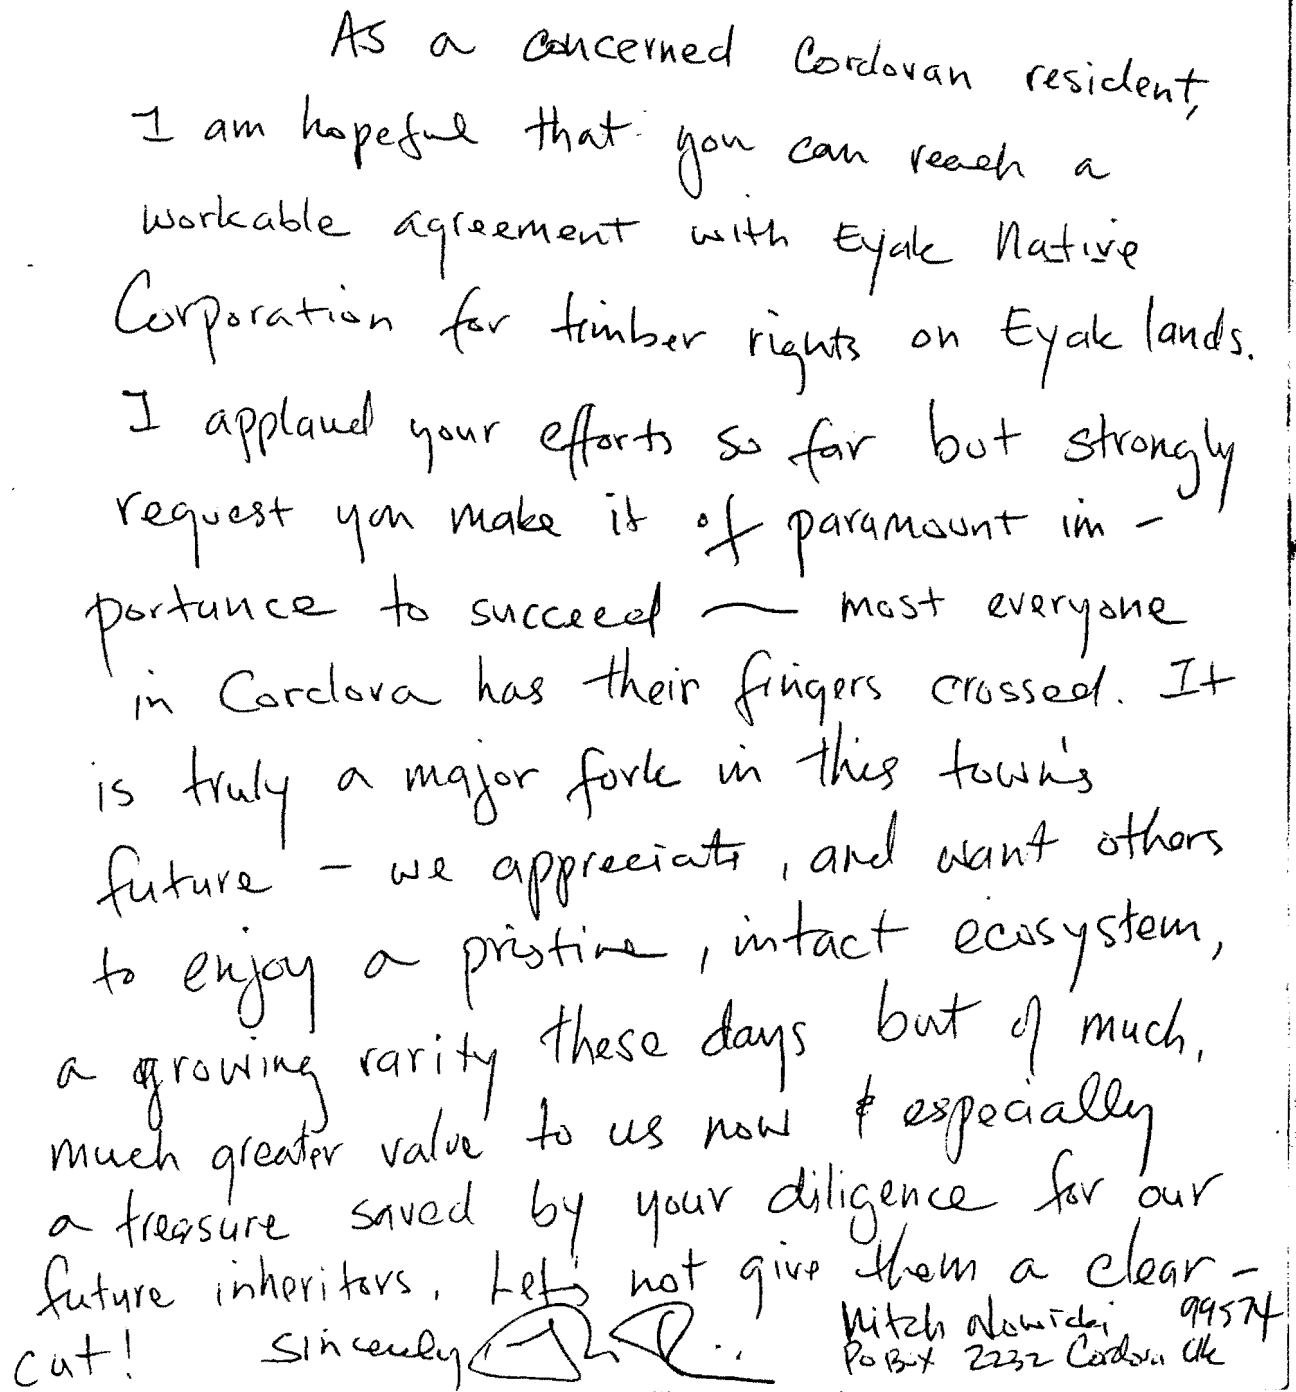 As a concerned Cordovan resident,
I am hopeful that you can reach a
workable agreement with Eyak Native
Corporation for timber rights on Eyak lands.
I applaud your efforts so far but strongly
request you make it of paramount im-
portance to succeed — most everyone
in Cordova has their fingers crossed. It
is truly a major fork in this town's
future - we appreciate, and want others
to enjoy a pristine, intact ecosystem,
a growing rarity these days but of much,
much greater value to us now & especially
a treasure saved by your diligence for our
future inheritors. Let's not give them a clear-
cut! Sincerely
Mitch Nowicki 99574
PO Box 2232 Cordova Ak